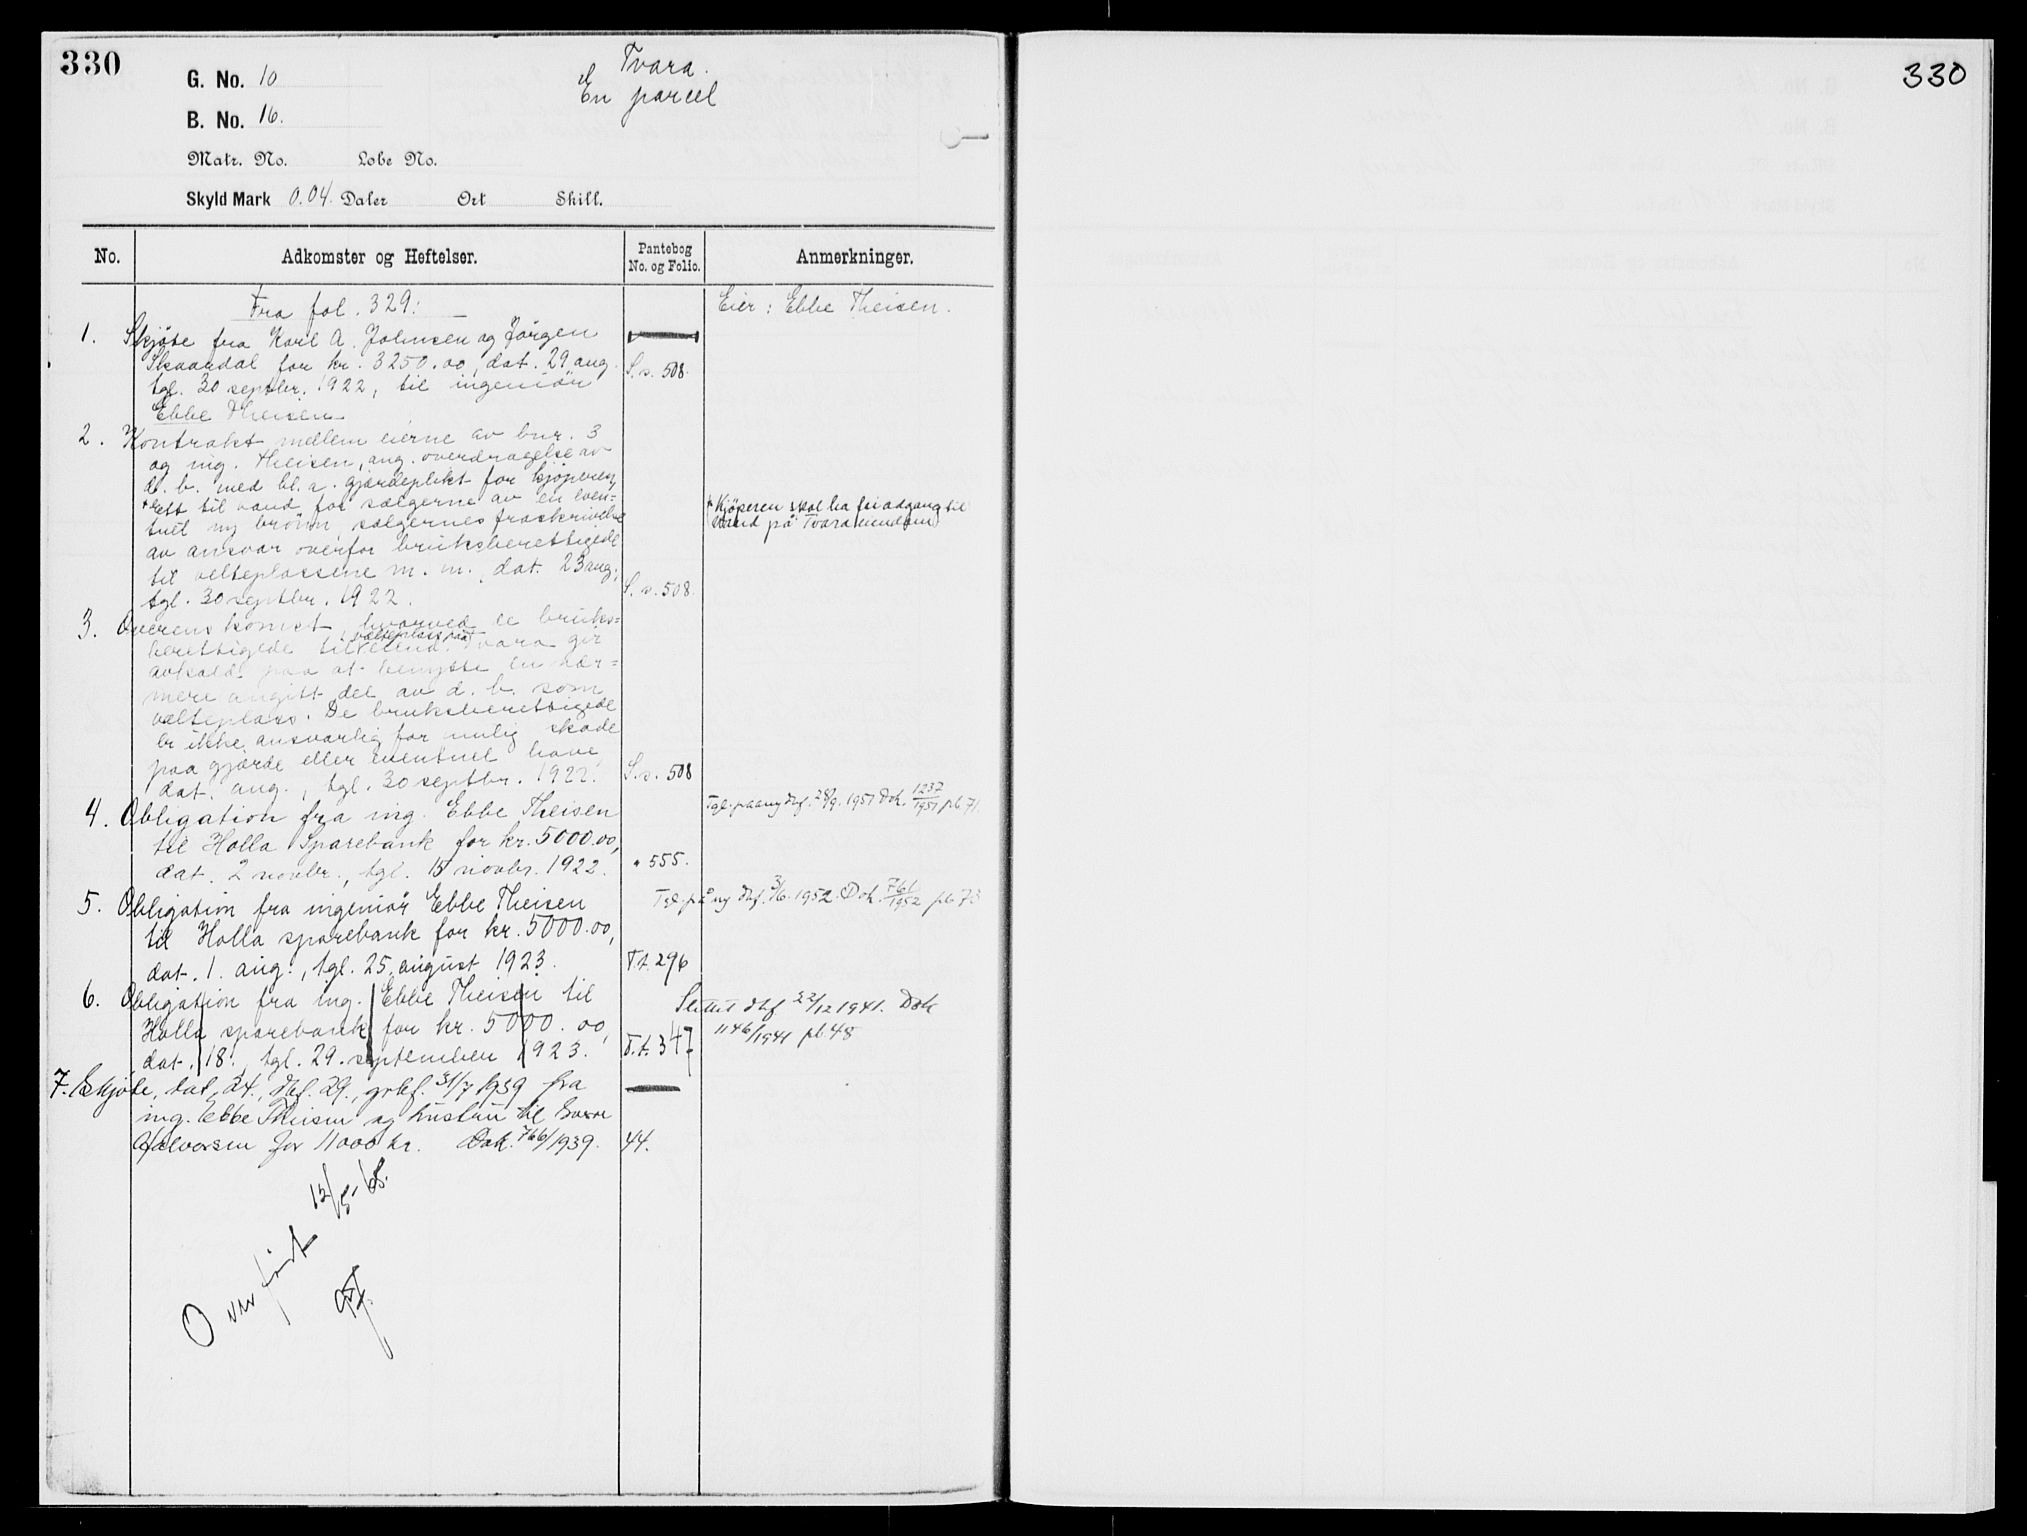 330
G. No. 10
Tvara.
En parcel
B. No. 16.
Matr. No. Løbe No.
Skyld Mark 0.04. Daler Ort Skill.
No. Adkomster og Heftelser. Pantebog No. og Folio. Anmerkninger.
Fra fol. 329:
Eier: Ebbe Theisen.
1. Skjöte fra Karl A. Johnsen og Jörgen
Skaardal for kr. 3250.00, dat. 29 aug.
tgl. 30 septbr. 1922, til ingeniör
Ebbe Theisen
S.s. 508.
2. Kontrakt mellem eierne av bnr. 3
og ing. Theisen, ang. overdragelse av
d. b. med bl. a. gjærdeplikt for kjöperen,
* rett til vand for sælgerne av en even=
tuel ny brönn, sælgernes fraskrivelse
av ansvar overfor bruksberettigede
til velteplassene m. m., dat. 23 aug.,
tgl. 30 septbr. 1922.
S.s. 508.
* Kjöperen skal ha fri adgang til
vand på Tvara eiendom
3. Overenskomst hvorved de bruks=
berettigede til velteplass paa eiend. Tvara gir
avkald paa at benytte en nær=
mere angitt del av d. b. som
velteplass. De bruksberettigede
er ikke ansvarlig for mulig skade
paa gjærde eller eventuel have,
dat. aug., tgl. 30 septbr. 1922.
S.s. 508
4. Obligation fra ing. Ebbe Theisen
til Holla Sparebank for kr. 5000.00,
dat. 2 novbr., tgl. 15 novbr. 1922.
" 555.
Tgl. paa ny dbf. 28/9. 1951 Dok. 1237/1951 pb. 71.
5. Obligation fra ingeniör Ebbe Theisen
til Holla sparebank for kr. 5000.00,
dat. 1. aug., tgl. 25. august 1923.
T.t. 296
Tgl. på ny dbf. 3/6. 1952. Dok. 761/1952 pb 73
6. Obligation fra ing. Ebbe Theisen til
Holla sparebank for kr. 5000.00,
dat. 18., tgl. 29. september 1923.
T.t. 347
Slettet dbf 22/12 1941. Dok
1146/1941 pb. 48
7. Skjöte, dat. 24., dbf. 29., grbf. 31/7 1939 fra
ing. Ebbe Theisen og hustru til
Halvorsen for 11000 kr. Dok. 766/1939.
44.
Overfört 15/5-68.
330